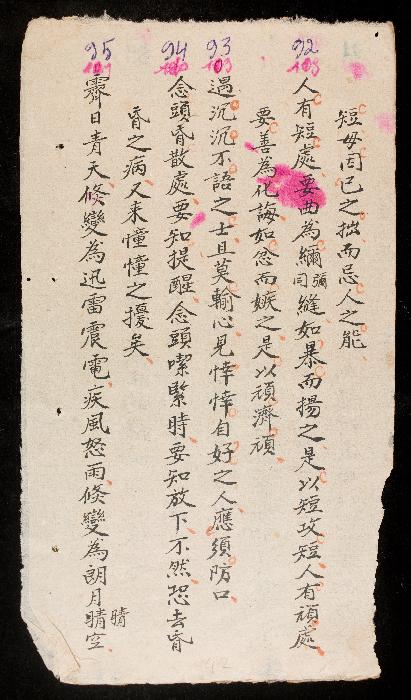 短毋因己之拙而忌人之能
92 103
人有短處要曲為繃彌同縫如暴而揚之是以短攻短人有頑處
要善為化誨如忿而嫉之是以頑濟頑
93 103
遇沉沉不語之士且莫輸心見悻悻自好之人應須防口
94
念頭昏散處要知提醒念頭喫緊時要知放下不然恐去昏
昏之病又来憧憧之擾矣
95
霽日青天倐變為迅雷震電疾風怒雨倐變為朗月晴空
晴